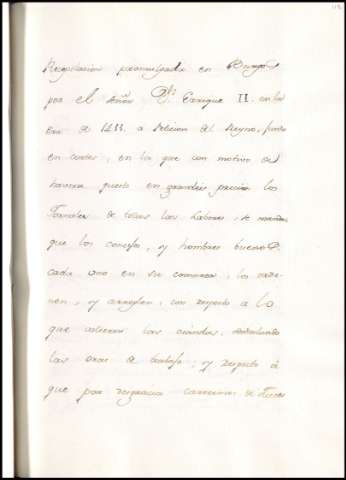 Regulacion promulgada en Burgos
por el Señor Dn. Enrique II. en la
era de 1411. a Peticion del Reyno, junto
en cortes, en la que con motivo de
haverse puesto en grandes precios los
Jornales de todas las Labores, se manda
que los concejos, y hombres buenos
cada uno en su comarca, los orde-
nen, y arreglen, con respecto a lo
que valieren las viandas, señalando
las oras de trabajo, y respecto á
que por desgracia carecemos de